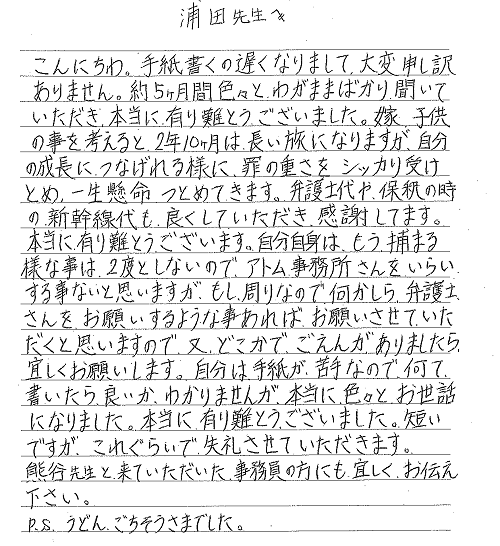 浦田先生へ
こんにちわ。手紙書くの遅くなりまして、大変申し訳
ありません。約5ヶ月間色々と、わがままばかり聞いて
いただき、本当に、有り難とうございました。嫁、子供
の事を考えると、2年10ヶ月は、長い旅になりますが、自分
の成長に、つなげれる様に、罪の重さを シッカリ受け
とめ、一生懸命 つとめてきます。弁護士代や、保釈の時
の、新幹線代も、良くしていただき、感謝してます。
本当に、有り難とうございます。自分自身は、もう、捕まる
様な事は、2度としないので、アトム事務所さんをいらい
する事ないと思いますが、もし、周りなので何かしら、弁護士
さんを、お願いするような事あれば、お願いさせていた
だくと思いますので、又、どこかで、ごえんがありましたら、
宜しくお願いします。自分は手紙が、苦手なので、何て、
書いたら、良いか、わかりませんが、本当に、色々と、お世話
になりました。本当に、有り難とうございました。短い
ですが、これぐらいで、失礼させていただきます。
熊谷先生と、来ていただいた、事務員の方にも、宜しく、お伝え
下さい。
P.S. うどん、ごちそうさまでした。